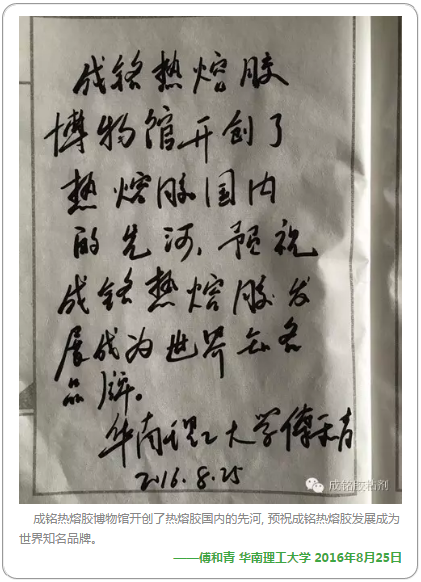 成铭热熔胶
博物馆开创了
热熔胶国内
的先河,预祝
成铭热熔胶发
展成为世界知名
品牌。
华南理工大学傅和青
2016.8.25
成铭胶粘剂
成铭热熔胶博物馆开创了热熔胶国内的先河, 预祝成铭热熔胶发展成为
世界知名品牌。
——傅和青 华南理工大学 2016年8月25日